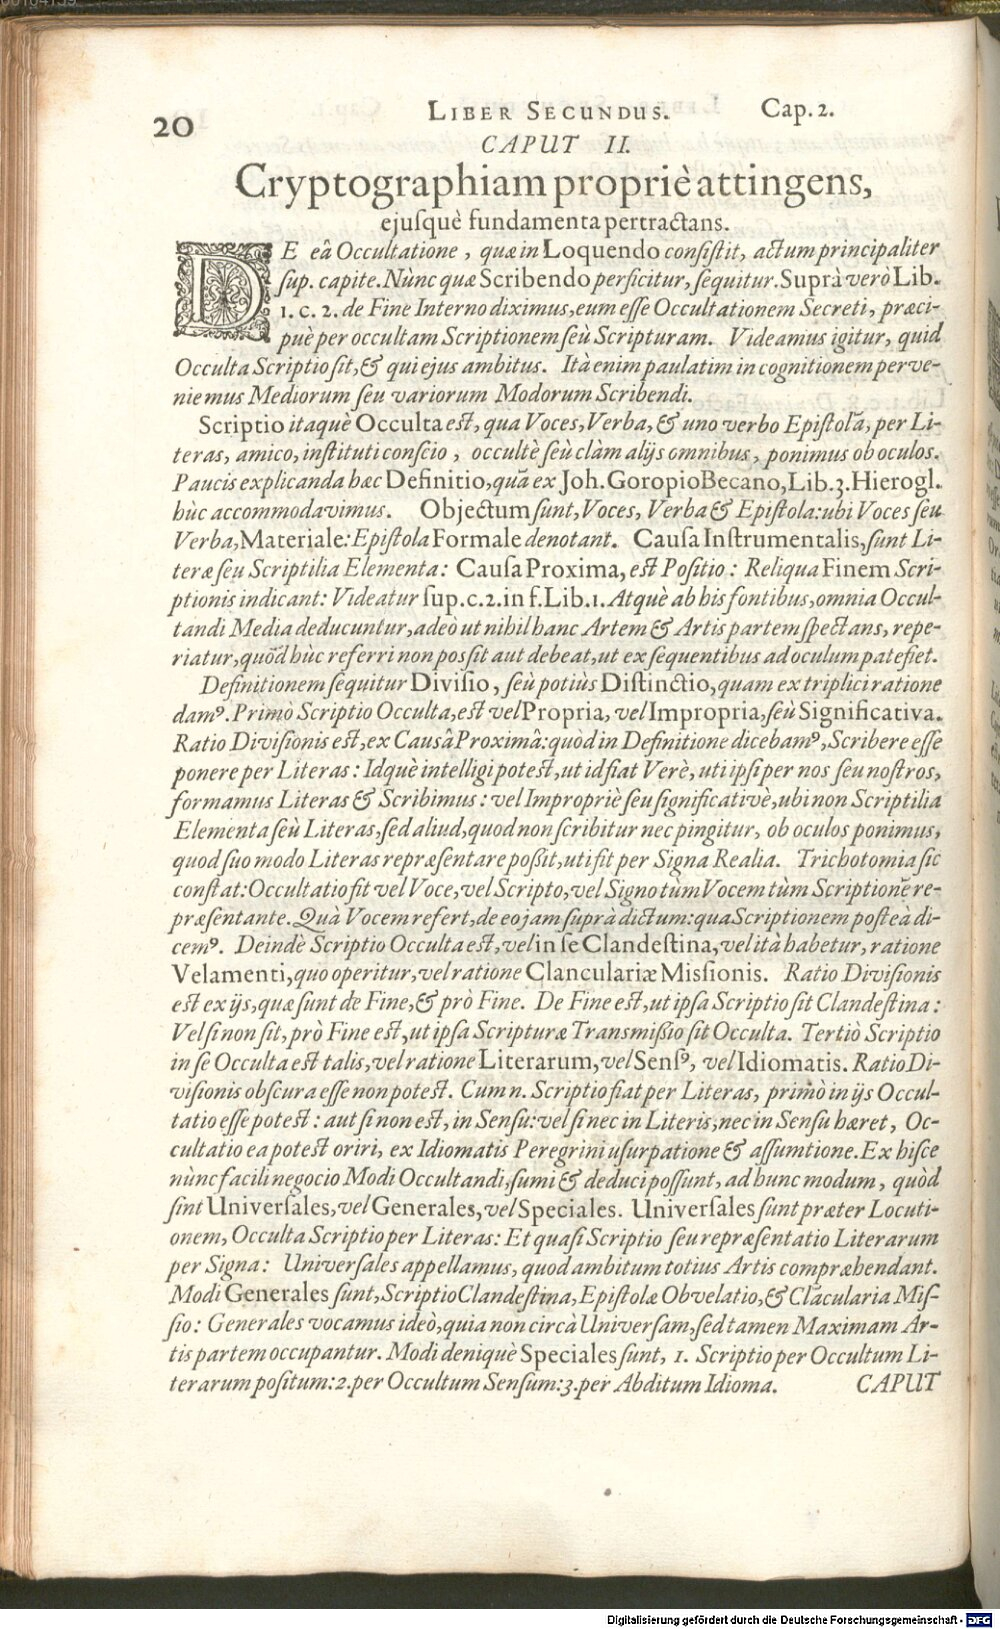 20 LIBER SECUNDUS. Cap. 2.
CAPUT II.
Cryptographiam propriè attingens,
ejuſquè fundamenta pertractans.
DE eâ Occultatione, quæ in Loquendo conſiſtit, actum principaliter
ſup. capite. Nùnc quæ Scribendo perficitur, ſequitur. Suprà verò Lib.
1. c. 2. de Fine Interno diximus, eum eſſe Occultationem Secreti, præci-
puè per occultam Scriptionem ſeù Scripturam. Videamus igitur, quid
Occulta Scriptio ſit, & qui ejus ambitus. Ità enim paulatim in cognitionem perve-
niemus Mediorum ſeu variorum Modorum Scribendi.
Scriptio itaquè Occulta est, qua Voces, Verba, & uno verbo Epiſtolã, per Li-
teras, amico, inſtituti conſcio, occultè ſeù clàm alijs omnibus, ponimus ob oculos.
Paucis explicanda hæc Definitio, quã ex Joh. Goropio Becano, Lib. 3. Hierogl.
hùc accommodavimus. Objectum ſunt, Voces, Verba & Epiſtola: ubi Voces ſeu
Verba, Materiale: Epiſtola Formale denotant. Cauſa Inſtrumentalis, ſunt Li-
teræ ſeu Scriptilia Elementa: Cauſa Proxima, est Poſitio: Reliqua Finem Scri-
ptionis indicant: Videatur ſup. c. 2. in f. Lib. 1. Atquè ab his fontibus, omnia Occul-
tandi Media deducuntur, adeò ut nihil hanc Artem & Artis partem ſpectans, repe-
riatur, quõd hùc referri non poſſit aut debeat, ut ex ſequentibus ad oculum patefiet.
Definitionem ſequitur Diviſio, ſeù potiùs Diſtinctio, quam ex triplici ratione
damꝰ. Primò Scriptio Occulta, est vel Propria, vel Impropria, ſeù Significativa.
Ratio Diviſionis est, ex Cauſâ Proximâ: quòd in Definitione dicebamꝰ, Scribere eſſe
ponere per Literas: Idquè intelligi potest, ut id fiat Verè, uti ipſi per nos ſeu noſtros,
formamus Literas & Scribimus: vel Impropriè ſeu ſignificativè, ubi non Scriptilia
Elementa ſeù Literas, ſed aliud, quod non ſcribitur nec pingitur, ob oculos ponimus,
quod ſuo modo Literas repræſentare poßit, uti fit per Signa Realia. Trichotomia ſic
conſtat: Occultatio fit vel Voce, vel Scripto, vel Signo tùm Vocem tùm Scriptionẽ re-
præſentante. Quà Vocem refert, de eo jam ſuprà dictum: qua Scriptionem posteà di-
cemꝰ. Deindè Scriptio Occulta est, vel in ſe Clandeſtina, vel ità habetur, ratione
Velamenti, quo operitur, vel ratione Clanculariæ Miſſionis. Ratio Diviſionis
est ex ijs, quæ ſunt de Fine, & prò Fine. De Fine est, ut ipſa Scriptio ſit Clandeſtina:
Vel ſi non ſit, prò Fine est, ut ipſa Scripturæ Transmißio ſit Occulta. Tertiò Scriptio
in ſe Occulta est talis, vel ratione Literarum, vel Senſꝰ, vel Idiomatis. Ratio Di-
viſionis obſcura eſſe non potest. Cum n. Scriptio fiat per Literas, primò in ijs Occul-
tatio eſſe potest: aut ſi non est, in Senſu: vel ſi nec in Literis, nec in Senſu hæret, Oc-
cultatio ea potest oriri, ex Idiomatis Peregrini uſurpatione & aſſumtione. Ex hiſce
nùnc facili negocio Modi Occultandi, ſumi & deduci poſſunt, ad hunc modum, quòd
ſint Univerſales, vel Generales, vel Speciales. Univerſales ſunt præter Locuti-
onem, Occulta Scriptio per Literas: Et quaſi Scriptio ſeu repræſentatio Literarum
per Signa: Univerſales appellamus, quod ambitum totius Artis compræhendant.
Modi Generales ſunt, Scriptio Clandeſtina, Epiſtolæ Obvelatio, & Clãcularia Miſ-
ſio: Generales vocamus ideò, quia non circà Univerſam, ſed tamen Maximam Ar-
tis partem occupantur. Modi deniquè Speciales ſunt, 1. Scriptio per Occultum Li-
terarum poſitum: 2. per Occultum Senſum: 3. per Abditum Idioma. CAPUT
Digitalisierung gefördert durch die Deutsche Forschungsgemeinschaft - DFG